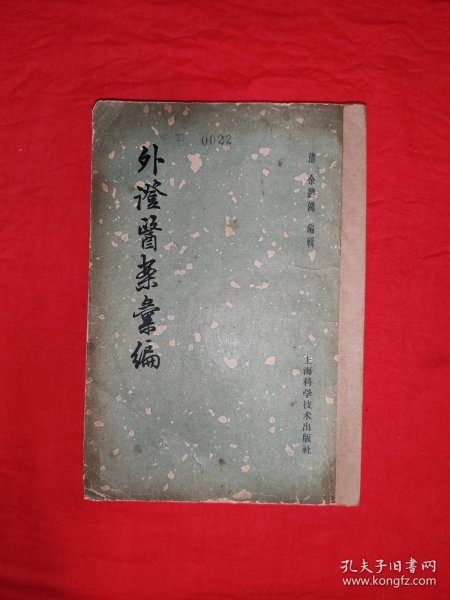 0022
外證醫案彙編
清 余聽鴻 編輯
上海科学技术出版社
孔夫子旧书网
www.kongfz.com